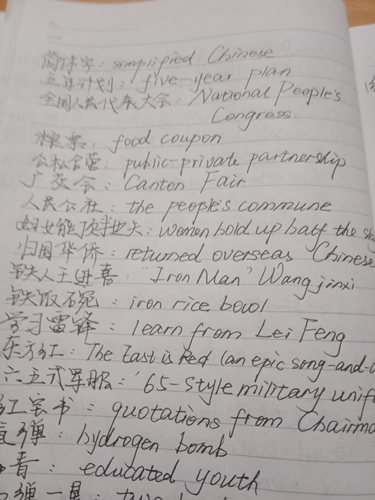 简体字: simplified Chinese
五年计划: five-year plan
全国人民代表大会: National People's
Congress.
粮票: food coupon
公私合营: public-private partnership
广交会: Canton Fair
人民公社: the people's commune
妇女能顶半边天: women hold up half the
归国华侨: returned overseas Chinese
铁人王进喜: "Iron Man" Wang jinxi
铁饭碗: iron rice bowl
学习雷锋: learn from Lei Feng
东方红: The East is Red (an epic song-and-
六五式军服: '65-style military
红宝书: quotations from
氢弹: hydrogen bomb
青: educated youth
弹一星: